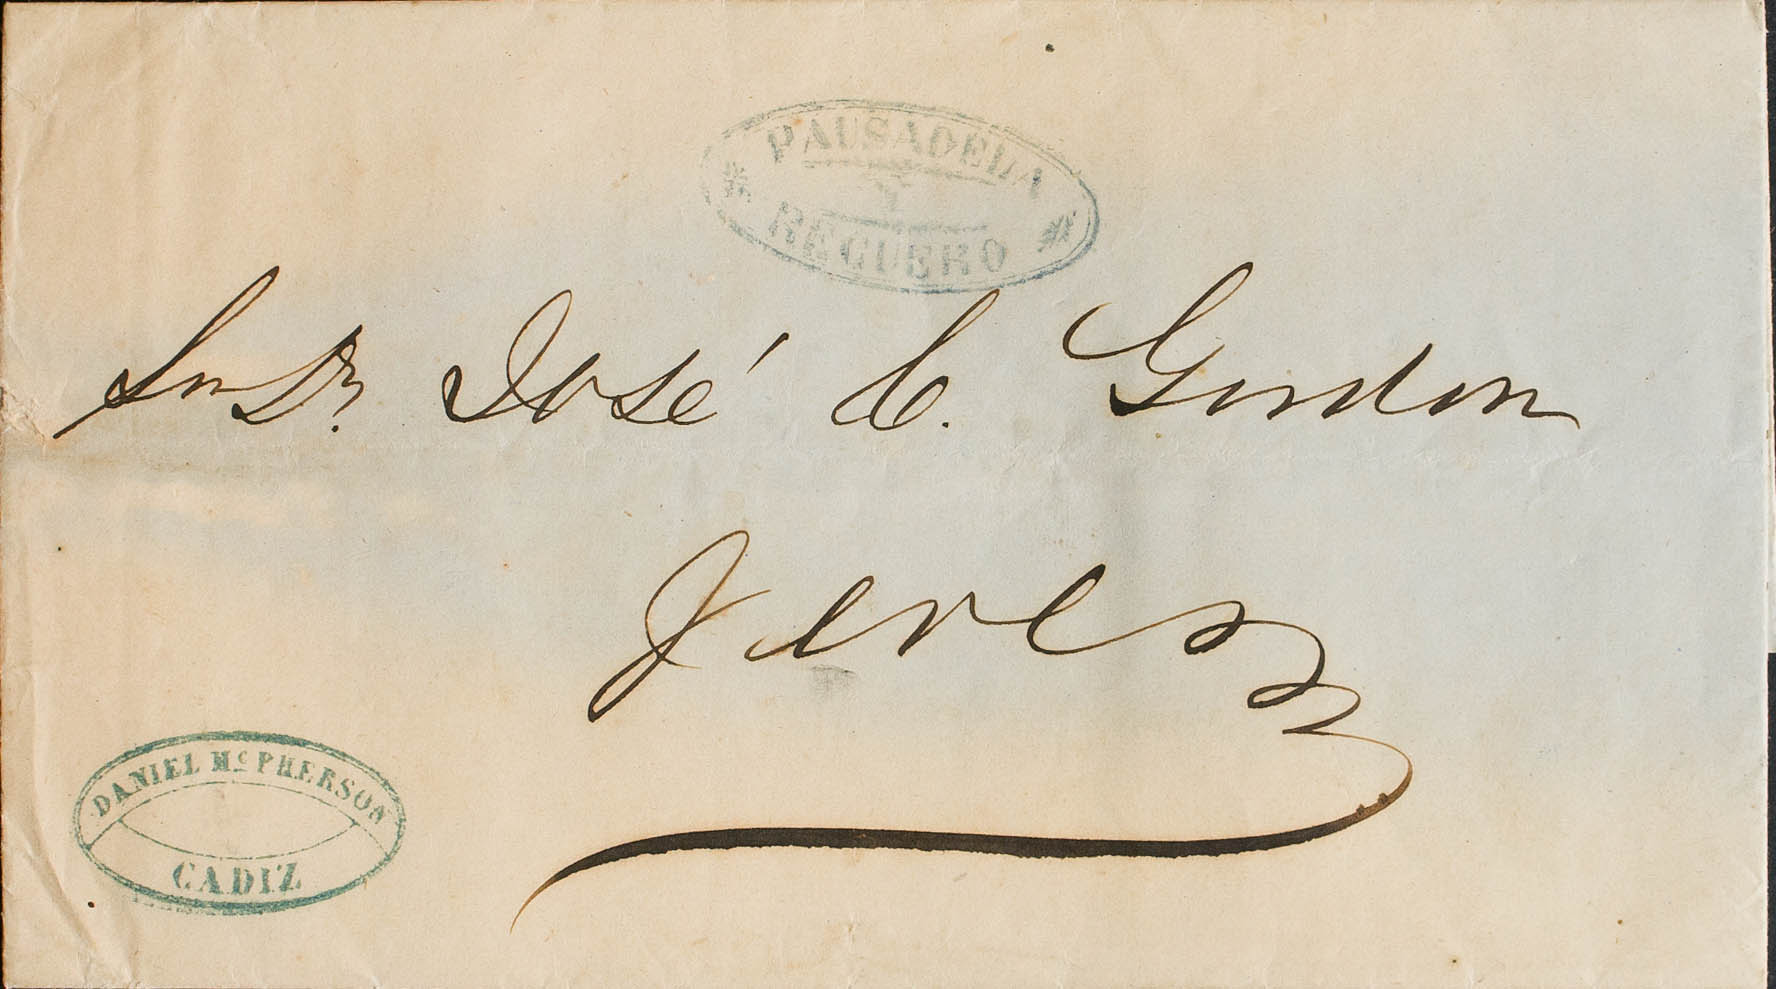 PAUSADELA
Y
REGUERO
Sor Dn José C. Gordon
Jerez
DANIEL Mc PHERSON
CADIZ